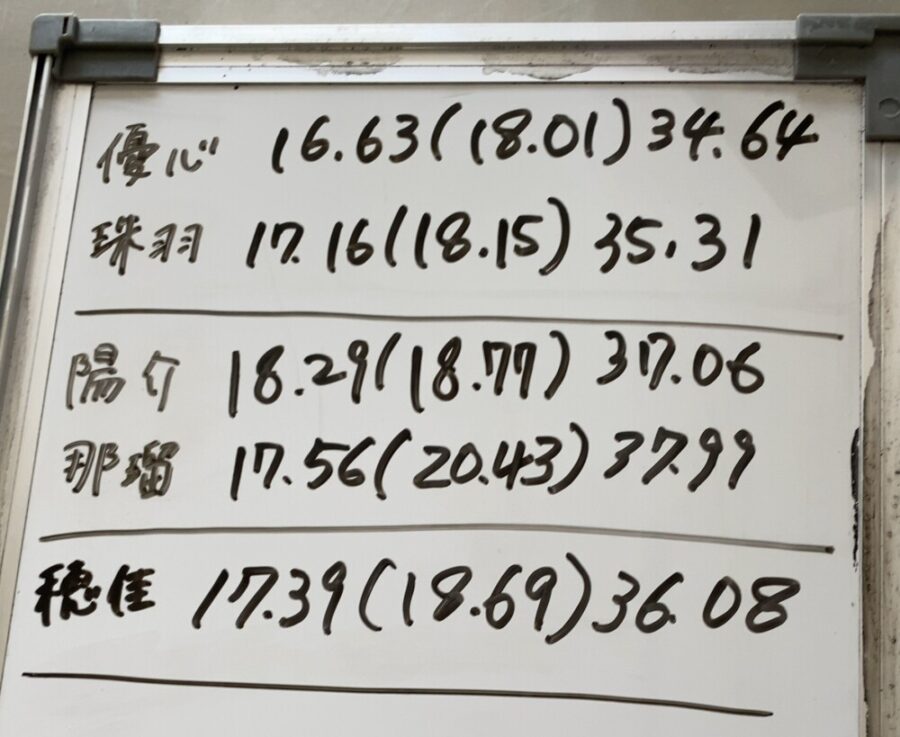 優心 16.63(18.01)34.64
珠羽 17.16(18.15)35.31
陽介 18.29(18.77)37.06
那瑠 17.56(20.43)37.99
穂佳 17.39(18.69)36.08